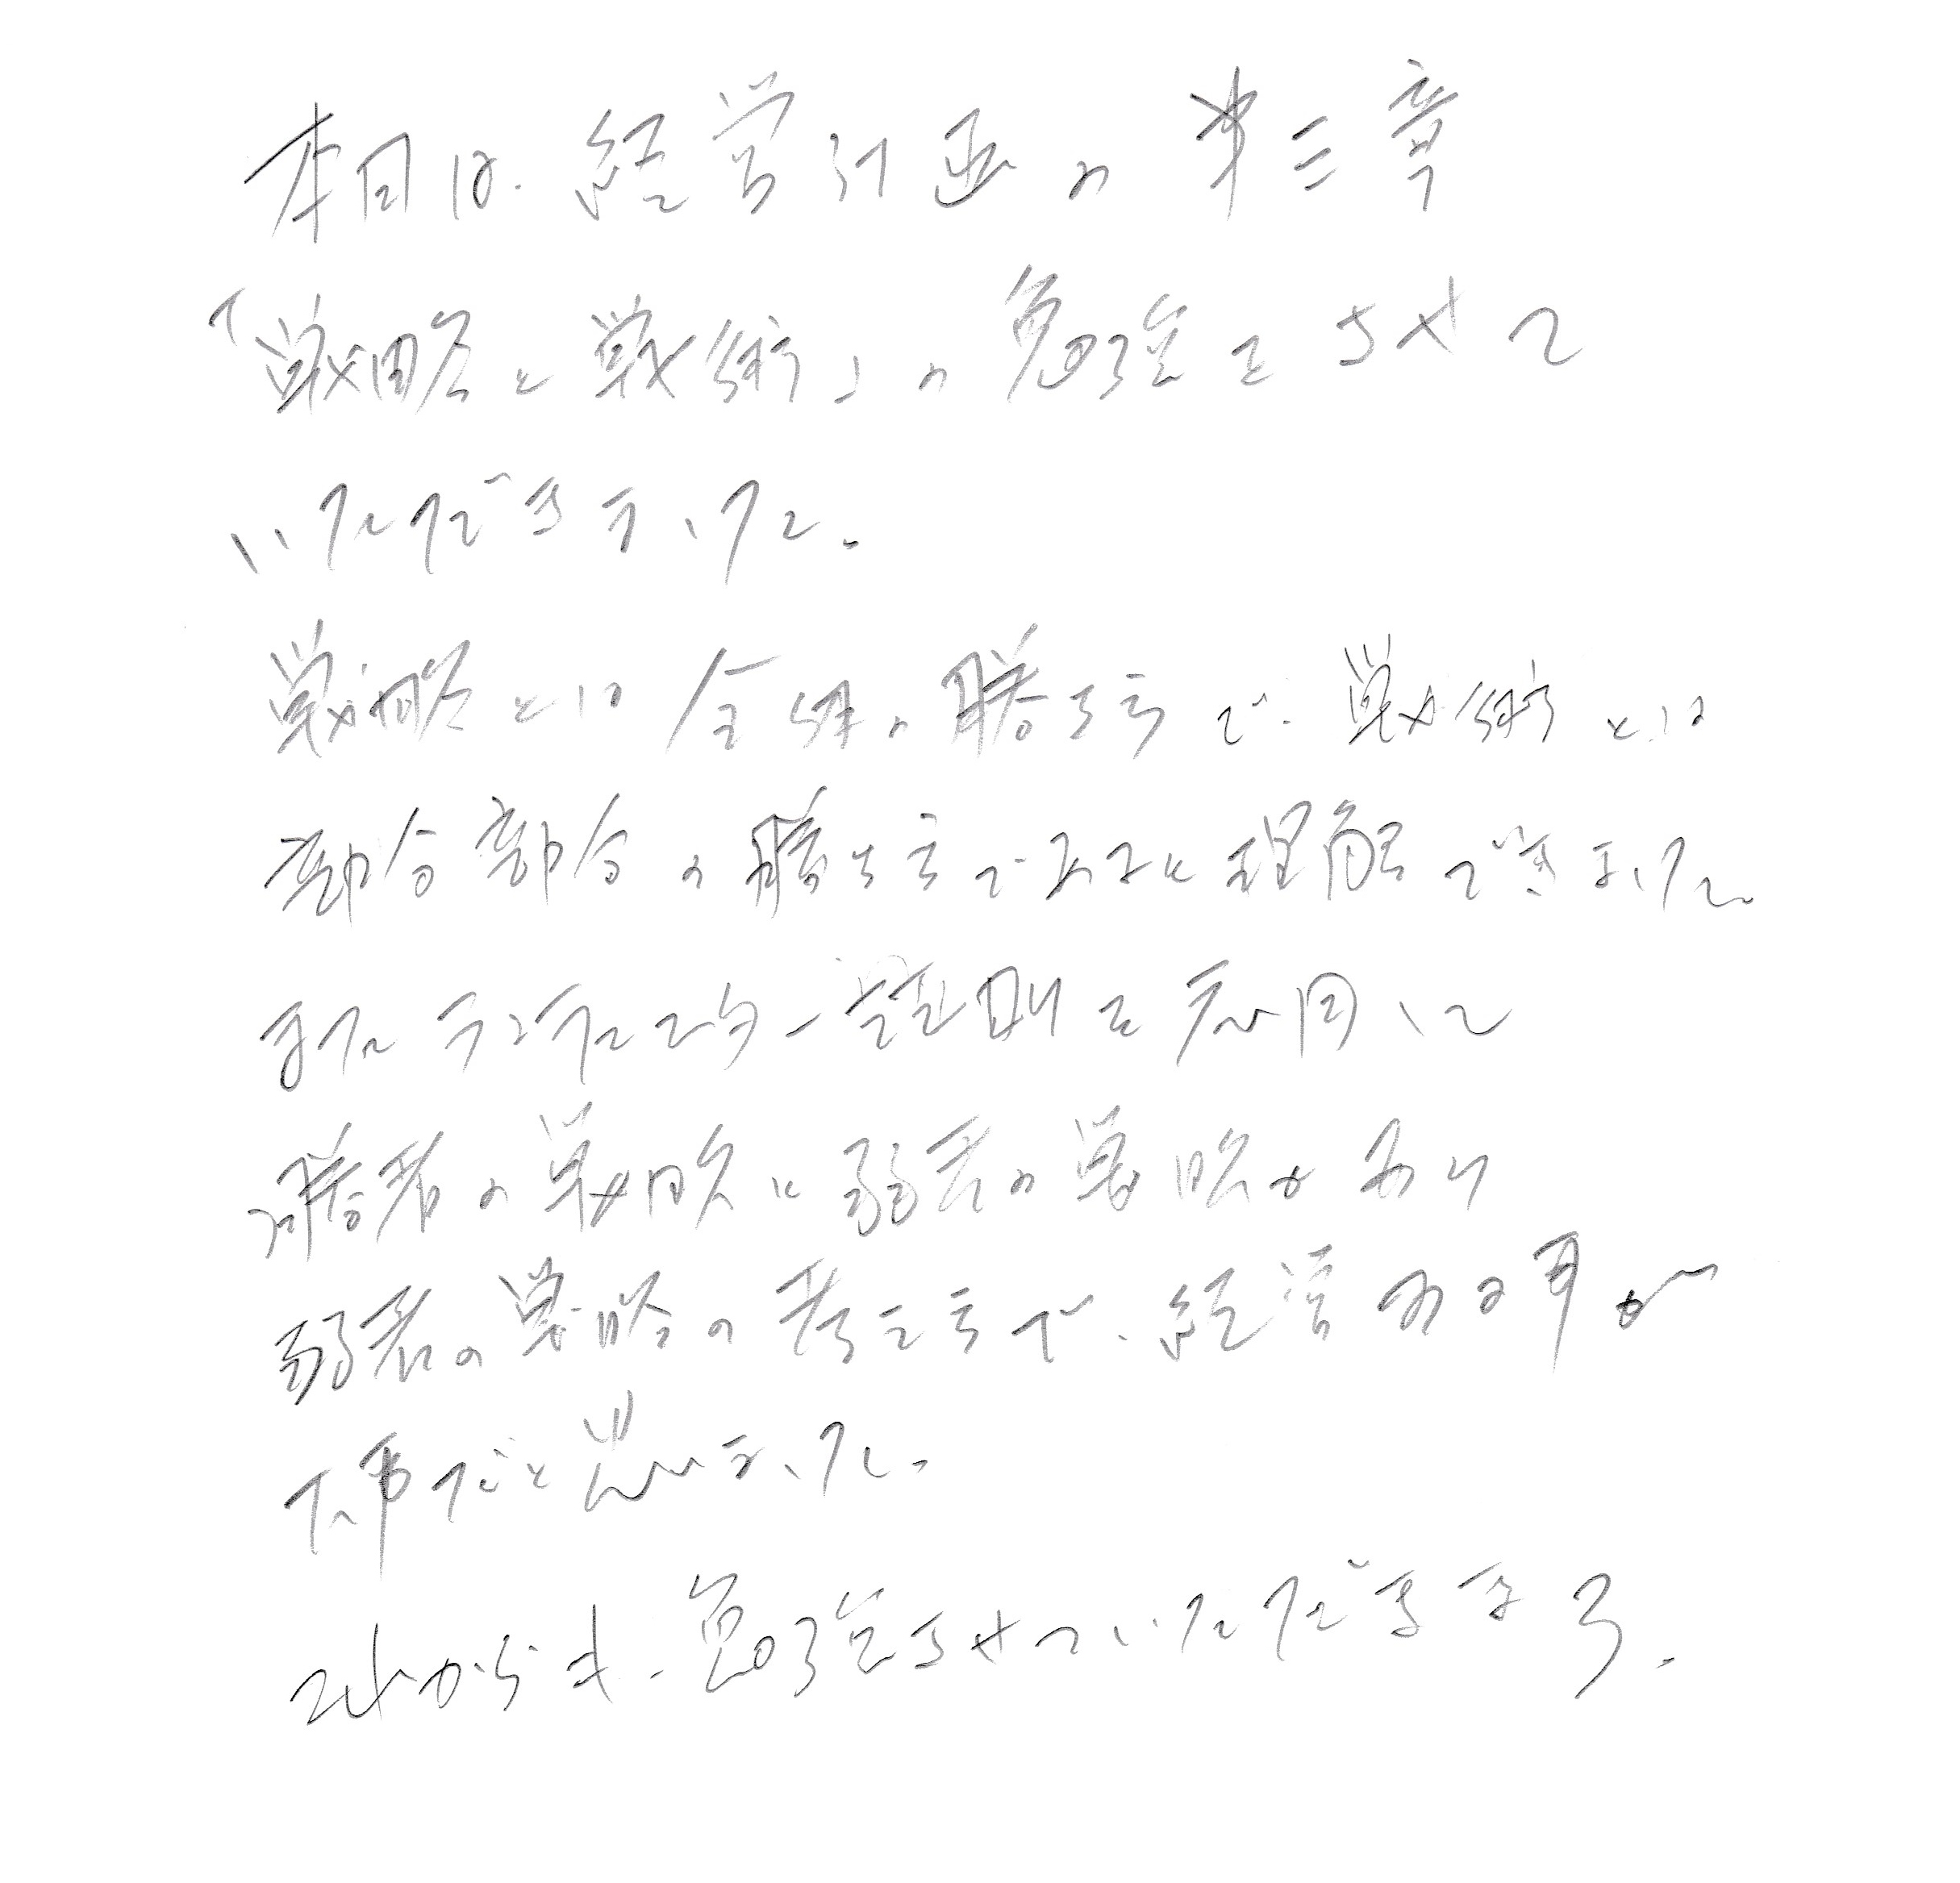 本日は、経営計画の第三章
「戦略と戦術」の勉強をさせて
いただきました。
戦略とは全体の勝ち方で、戦術とは
部分部分の勝ち方であると理解できました。
またランチェスター法則を用いて
勝者の戦略と弱者の戦略があり
弱者の戦略の考え方で、経営する事が
大事だと思いました。
これからも、勉強させていただきます。